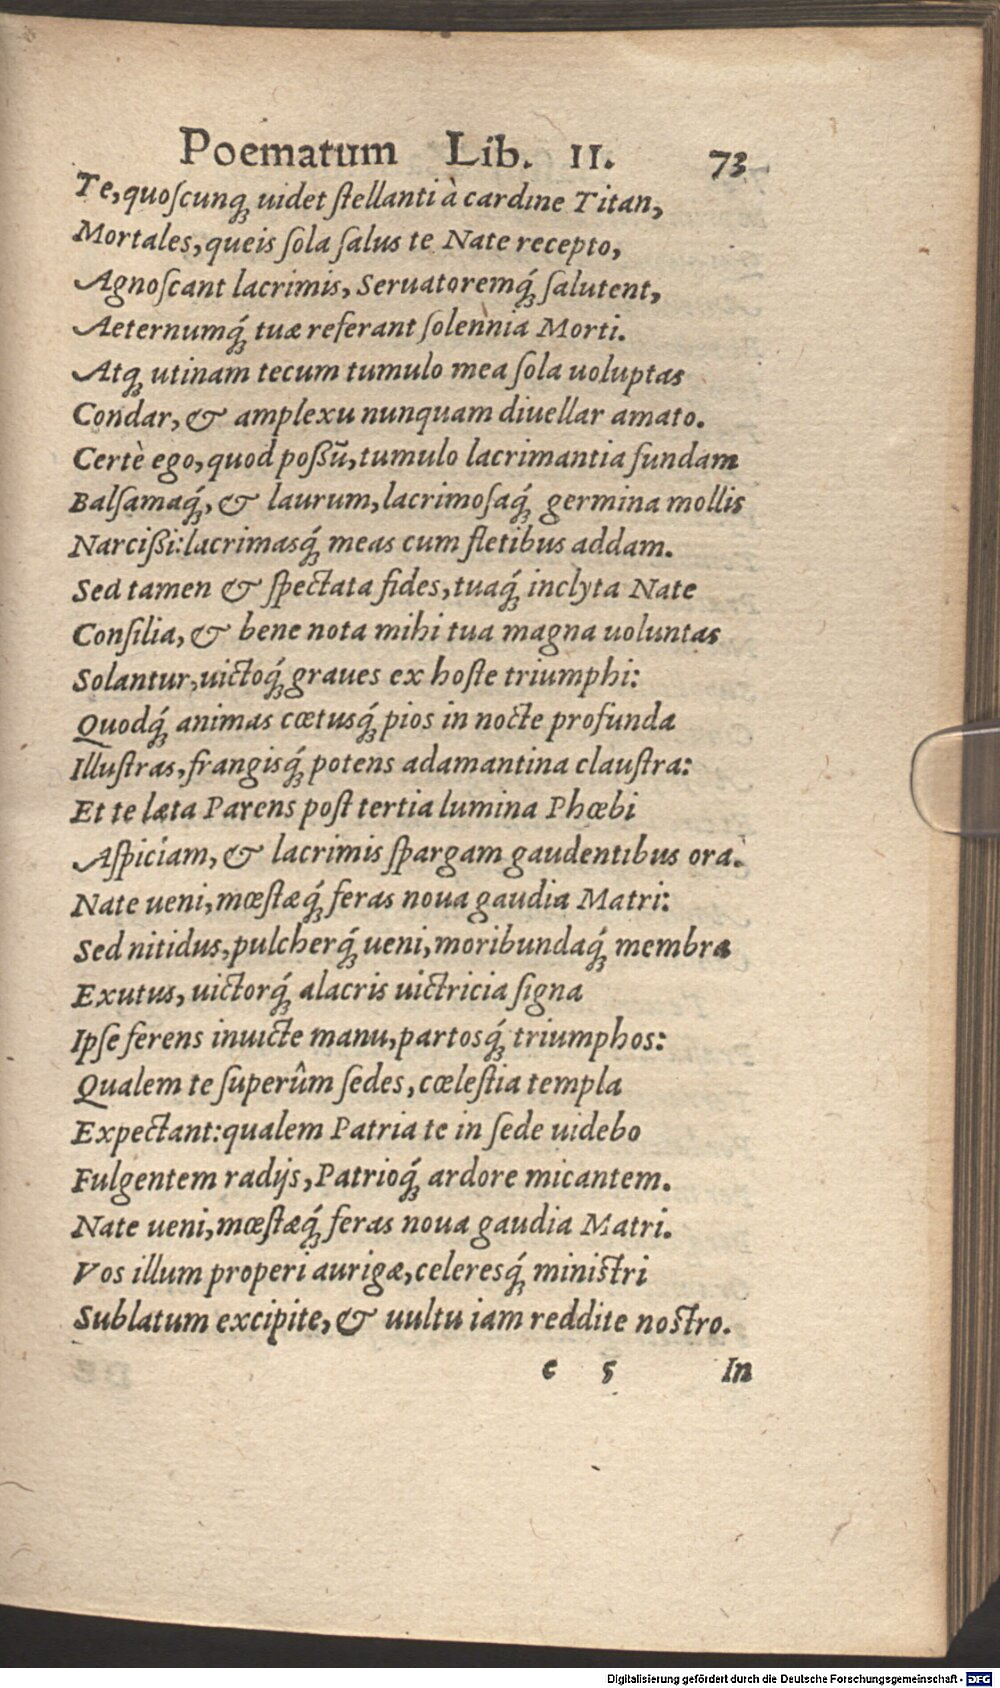 Poematum Lib. II. 73
Te, quoſcunq́ꝫ uidet ſtellanti à cardine Titan,
Mortales, queis ſola ſalus te Nate recepto,
Agnoſcant lacrimis, Seruatoremq́ꝫ ſalutent,
Aeternumq́ꝫ tuæ referant ſolennia Morti.
Atqꝫ utinam tecum tumulo mea ſola uoluptas
Condar, & amplexu nunquam diuellar amato.
Certè ego, quod poßũ, tumulo lacrimantia fundam
Balſamaq́ꝫ, & laurum, lacrimoſaq́ꝫ germina mollis
Narcißi: lacrimasq́ꝫ meas cum fletibus addam.
Sed tamen & ſpectata fides, tuaq́ꝫ inclyta Nate
Conſilia, & bene nota mihi tua magna uoluntas
Solantur, uictoq́ꝫ graues ex hoſte triumphi:
Quodq́ꝫ animas cœtusq́ꝫ pios in nocte profunda
Illuſtras, frangisq́ꝫ potens adamantina clauſtra:
Et te læta Parens poſt tertia lumina Phœbi
Aſpiciam, & lacrimis ſpargam gaudentibus ora.
Nate ueni, mœſtæq́ꝫ feras noua gaudia Matri:
Sed nitidus, pulcherq́ꝫ ueni, moribundaq́ꝫ membra
Exutus, uictorq́ꝫ alacris uictricia ſigna
Ipſe ferens inuicte manu, partosq́ꝫ triumphos:
Qualem te ſuperûm ſedes, cœleſtia templa
Expectant: qualem Patria te in ſede uidebo
Fulgentem radijs, Patrioq́ꝫ ardore micantem.
Nate ueni, mœſtæq́ꝫ feras noua gaudia Matri.
Vos illum properi aurigæ, celeresq́ꝫ miniſtri
Sublatum excipite, & uultu iam reddite noſtro.
e 5 In
Digitalisierung gefördert durch die Deutsche Forschungsgemeinschaft - DFG